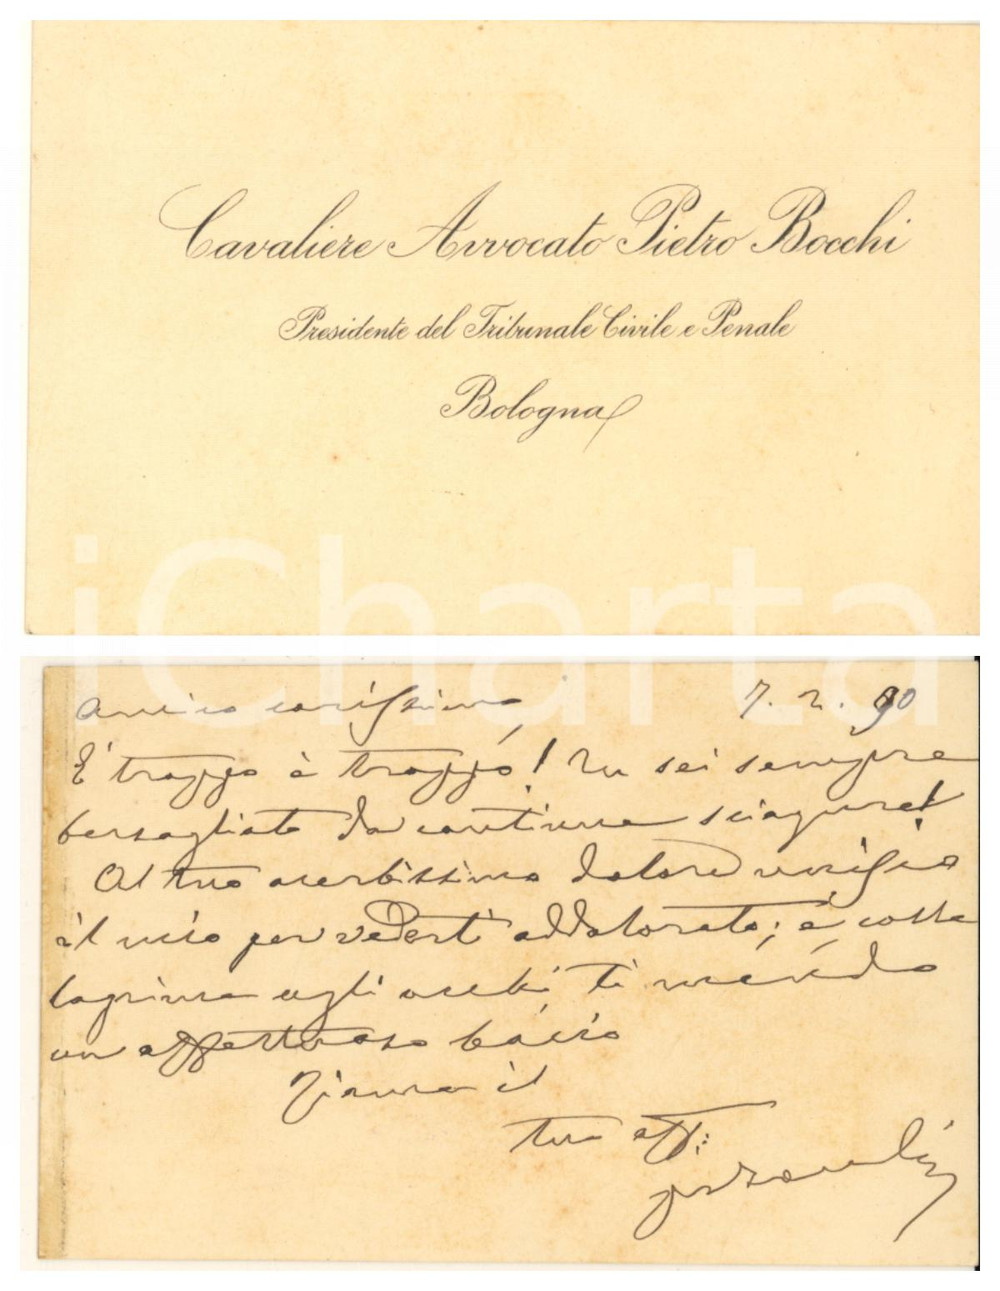 Cavaliere Avvocato Pietro Bocchi
Presidente del Tribunale Civile e Penale
Bologna
iCharta
Amico carissimo, 7. 2. 90
È troppo è troppo! Tu sei sempre
bersagliato da continue sciagure!
Al tuo acerbissimo dolore unisco
il mio per vederti addolorato; e colle
lagrime agli occhi, ti mando
un affettuoso bacio
il
tuo aff: